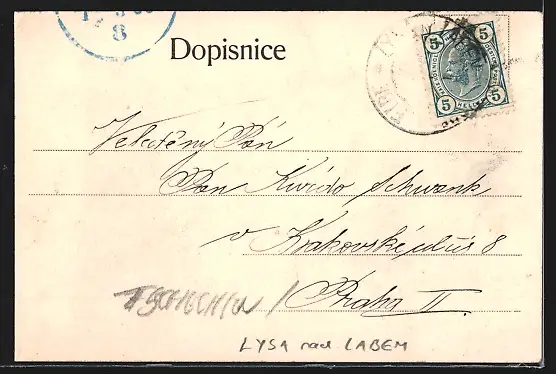 8
Dopisnice
5 5
5 5
Velectěný Pán
Pan Kvido Schwank
v Krakovské ulici 8
Praha II.
TSCHECHIEN /
LYSA nad LABEM